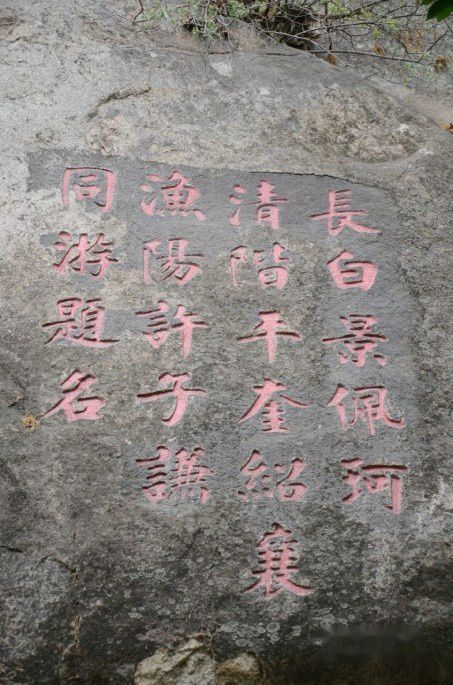 長白景佩珂
清階平奎紹襄
漁陽許子謙
同游題名